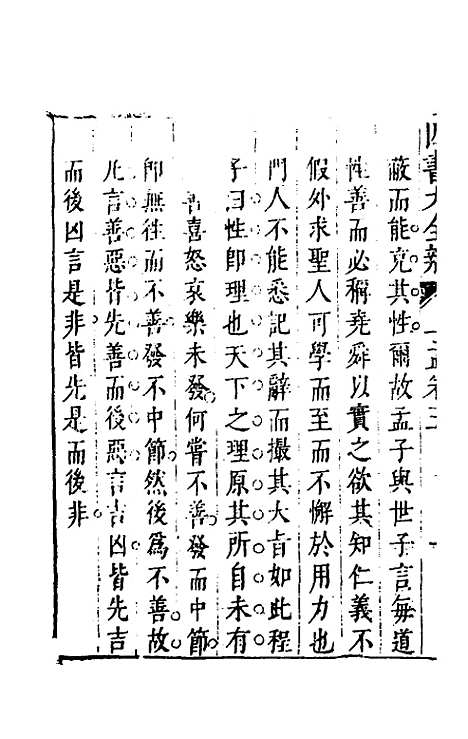 四書大全辯
蔽而能充其性爾故孟子與世子言每道
性善而必稱堯舜以實之欲其知仁義不
假外求聖人可學而至而不懈於用力也
門人不能悉記其辭而撮其大旨如此程
子曰性卽理也天下之理原其所自未有
不善喜怒哀樂未發何嘗不善發而中節
卽無往而不善發不中節然後爲不善故
凡言善惡皆先善而後惡言吉凶皆先吉
而後凶言是非皆先是而後非